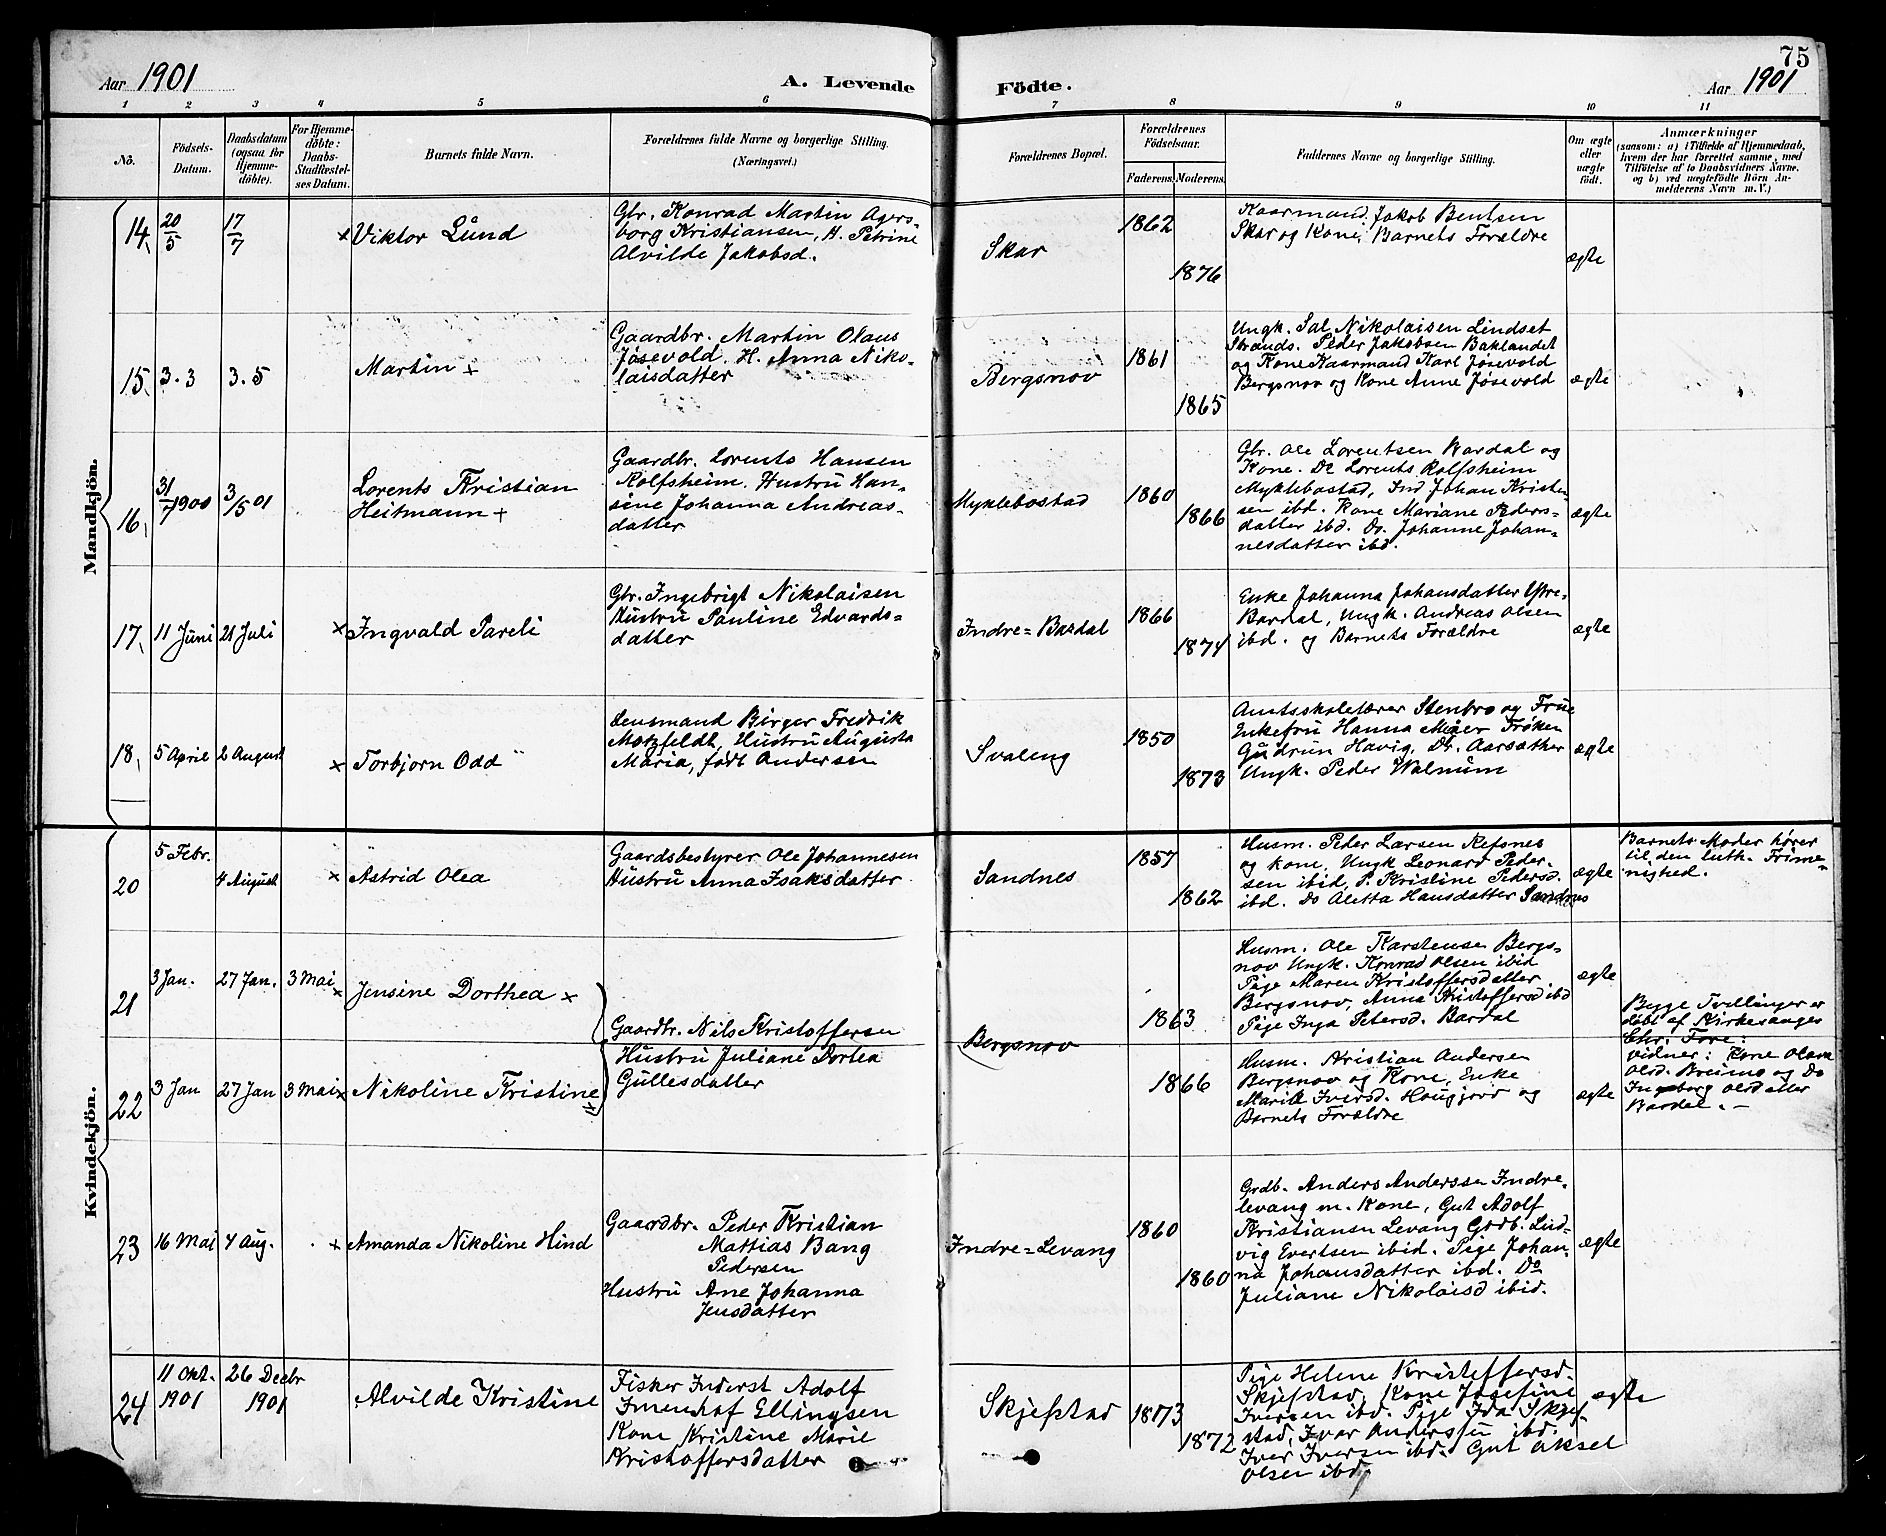 75
Aar 1901
A. Levende Födte.
Aar 1901
1 2 3 4 5 6 7 8 9 10 11
No.
Födsels-
Datum.
Daabsdatum
(ogsaa for
Hjemme-
döbte).
For Hjemme-
döbte:
Daabs-
Stadfæstel-
ses Datum.
Barnets fulde Navn.
Forældrenes fulde Navne og borgerlige Stilling.
(Næringsvei.)
Forældrenes Bopæl.
Forældrenes
Födselsaar.
Faderens. Moderens.
Faddernes Navne og borgerlige Stilling.
Om ægte
eller
uægte
födt.
Anmærkninger
(saasom: a) i Tilfælde af Hjemmedaab,
hvem der har forrettet samme, med
Tilföielse af to Daabsvidners Navne,
og b) ved uægtefödte Börn An-
melderens Navn m. V.)
Mandkjön.
14,
20/5
17/7
x Viktor Lund
Gbr. Konrad Martin Agers-
borg Kristiansen, H. Petrine
Alvilde Jakobsd.
Skar
1862
1876
Kaarmand Jakob Bentsen
Skar og Kone, Barnets Forældre
ægte
15,
3.3
3.5
Martin +
Gaardbr. Martin Olaus
Jøsevold. H. Anna Niko-
laisdatter
Bergsnov
1861
1865
Ungk. Sal Nikolaisen Lindset
Strands. Peder Jakobsen Baklandet
og Kone Kaarmand Karl Jøsevold
Bergsnov og Kone Anne Jøsevold
ægte
16,
31/7 1900
3/5 01
Lorents Kristian
Heitmann +
Gaardbr. Lorents Hansen
Rolfsheim. Hustru Han-
sine Johanna Andreas-
datter
Myklebostad
1860
1866
Gbr. Ole Lorentsen Bardal og
Kone. Do Lorents Rolfsheim
Myklebostad, Ind Johan Kristen-
sen ibd. Kone Mariane Peders-
datter ibd. Do. Johanne Johan-
nesdatter ibd.
ægte
17,
11 Juni
21 Juli
x Ingvald Pareli
Gbr. Ingebrigt Nikolaisen
Hustru Pauline Edvards-
datter
Indre=Bardal
1866
1874
Enke Johanna Johansdatter Ytre-
Bardal, Ungk. Andreas Olsen
ibd. og Barnets Forældre
ægte
18,
5 April
2 August
x Torbjorn Odd
Lensmand Birger Fredrik
Motzfeldt, Hustru Augusta
Maria, født Andersen
Svaleng
1850
1873
Amtsskolelærer Stenbro og Frue
Enkefru Hanna Meier Frøken
Gudrun Havig, Do. Aarsæther
Ungk. Peder Walnum
ægte
Kvindekjön.
20
5 Febr.
4 August
x Astrid Olea
Gaardsbestyrer Ole Johannesen
Hustru Anna Isaksdatter
Sandnes
1857
1862
Husm. Peder Larsen Refsnes
og Kone, Ungk Leonard Peder-
sen ibid, P. Kristine Pedersd.
ibd. Do Aletta Hansdatter Sandnes
ægte
Barnets Moder hører
til den luth. Frime-
nighed.
21
3 Jan.
27 Jan.
3 Mai
x Jensine Dorthea x
Gaardbr. Nils Kristoffersen
Hustru Juliane Dortea
Gullesdatter
Bergsnov
1863
1866
Husm. Ole Karstensen Bergs-
nov Ungk. Konrad Olsen ibid
Pige Maren Kristoffersdatter
Bergsnov, Anna Kristoffersd ibd
Pige Inga Petersd. Bardal
ægte
Begge Tvillinger er
døbt af Kirkesanger
Chr. Fore:
vidner: Kone Olava
Olsd. Breimo og Do
Ingeborg Olsdatter
Bardal. —
22
3 Jan
27 Jan
3 Mai
x Nikoline Kristine
Husm. Kristian Andersen
Bergsnov og Kone, Enke
Marie Iversd. Haugjord og
Barnets Forældre
ægte
23
16 Mai
4 Aug.
x Amanda Nikoline Hind
Gaardbr. Peder Kristian
Mattias Bang
Pedersen
Hustru Ane Johanna
Jensdatter
Indre=Levang
1860
1860
Grdb. Anders Anderssen Indre-
levang m. Kone, Gut Adolf
Kristiansn Levang Grdb. Lud-
vig Evertsen ibid. Pige Johan-
na Johansdatter ibd. Do
Juliane Nikolaisd ibid.
ægte
24
11 Okt.
1901
26 Decbr
1901
Alvilde Kristine
Fisker Inderst Adolf
Imenhof Ellingsen
Kone Kristine Marie
Kristoffersdatter
Skjefstad
1873
1872
Pige Helene Kristoffersd.
Skjefstad, Kone Josefine
Iversen ibd. Pige Ida Skjef-
stad, Ivar Anderssen ibd.
Iver Iversen ibd. Gut Aksel
Olsen ibd
ægte